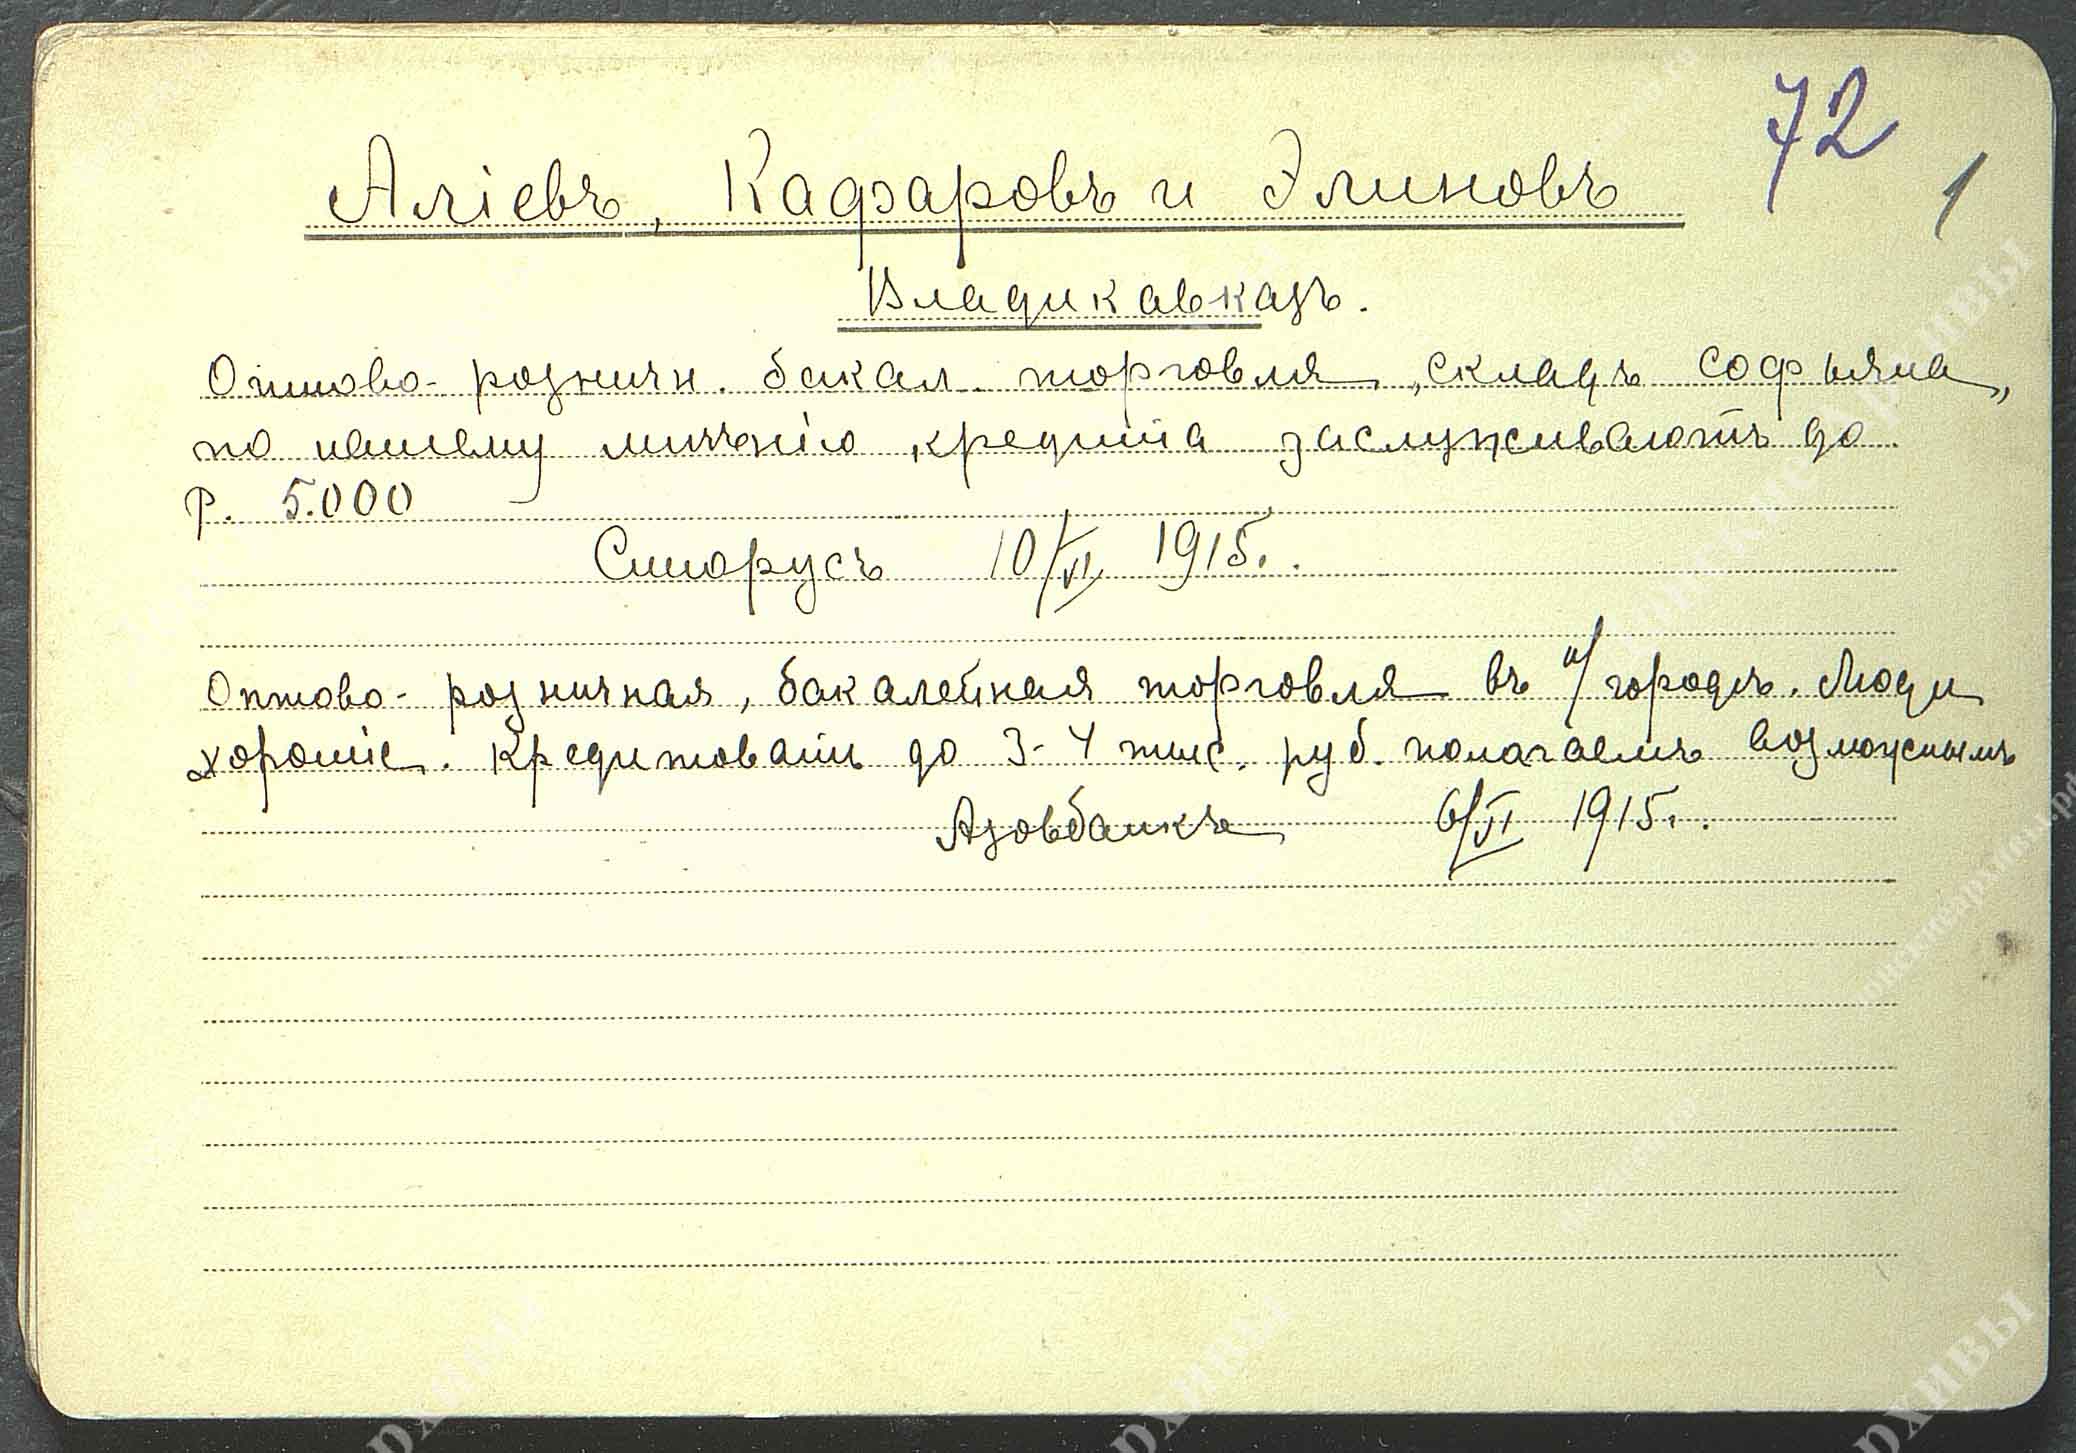 72
1
Аліевъ, Кафаровъ и Элиновъ
Владикавказъ.
Оптово-розничн. бакал. торговля, „складъ софьяна„
по нашему мнѣнію, кредита заслуживаютъ до
Р. 5.000
Сторусъ 10/VI 1915г.
Оптово-розничная, бакалейная торговля въ н/городѣ. Люди
хорошіе. Кредитовать до 3-4 тыс. руб. полагаемъ возможнымъ
Азовбанкъ 6/VI 1915г.